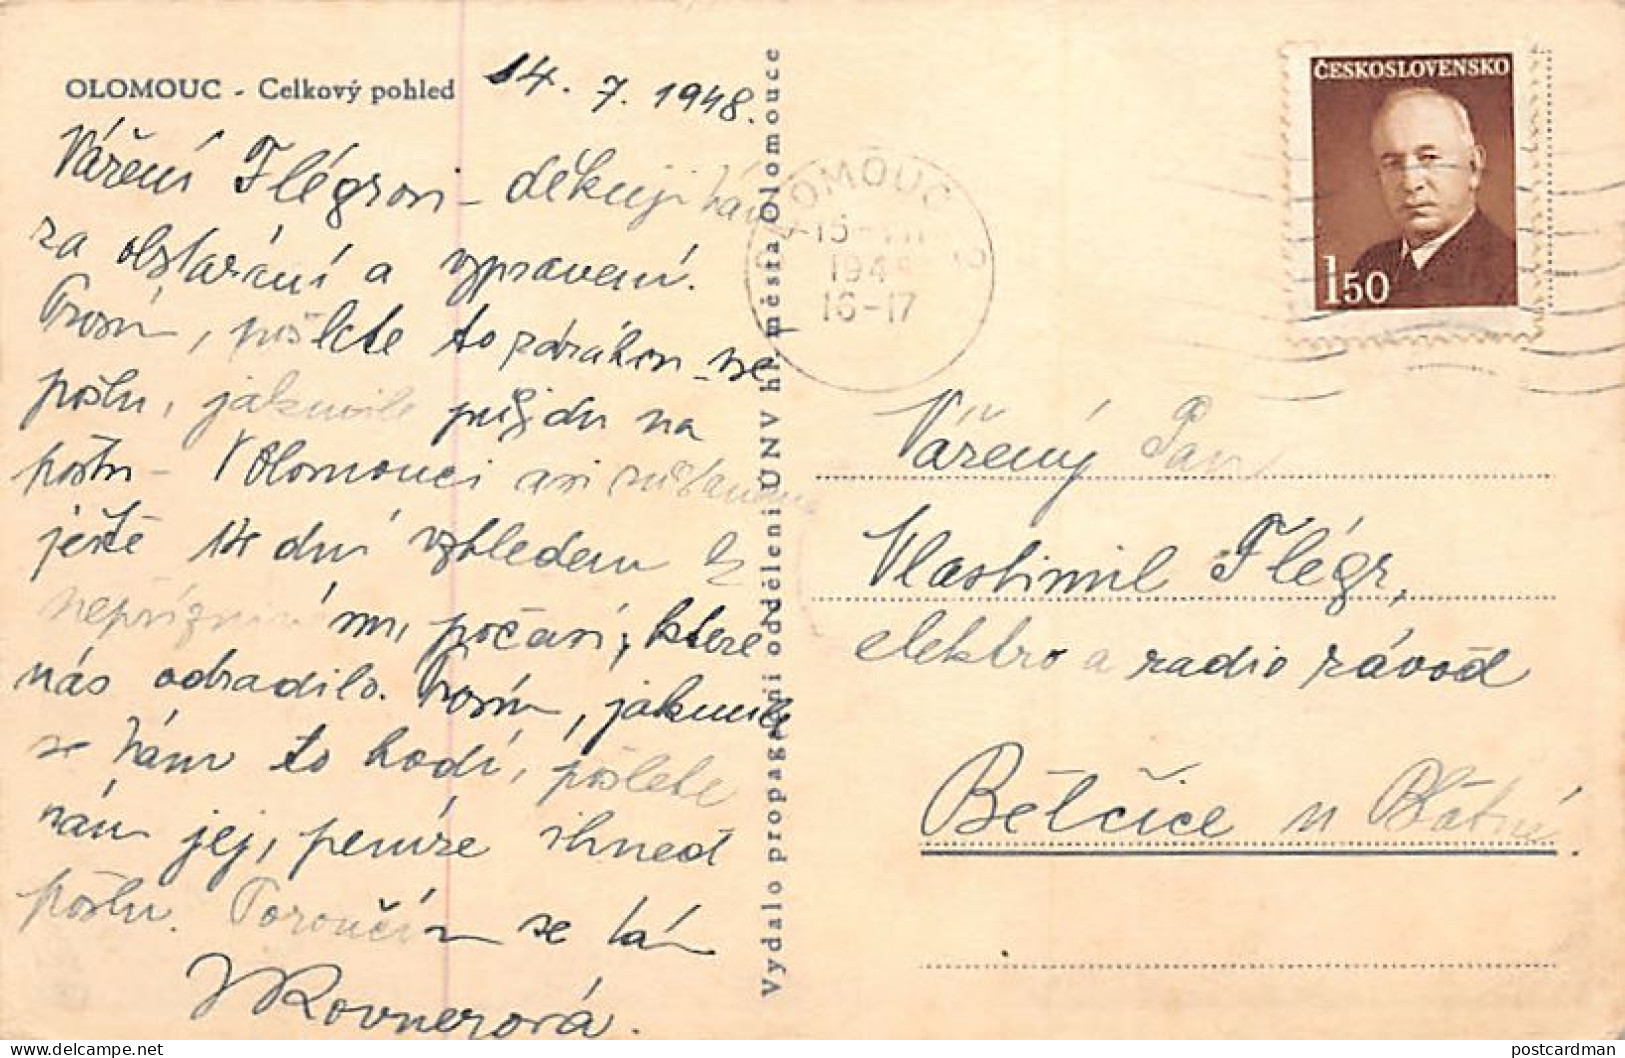 OLOMOUC - Celkový pohled
14. 7. 1948.
Vážení Flégrovi - děkuji Vám
za obstarání a vypravení.
Prosím, pošlete to
poštu, jakmile půjdu na
poštu - V Olomouci asi zůstaneme
ještě 14 dní vzhledem k
nepříznivému počasí, které
nás odradilo. Prosím, jakmile
se Vám to hodí, pošlete
nám jej, peníze ihned
pošlu. Poroučím se Vám
Rovnerová.
Vydalo propagační oddělení ÚNV hl. města Olomouce
OLOMOUC
-15-VII
194
16-17
ČESKOSLOVENSKO
1 50
Vážený Pan
Vlastimil Flégr,
elektro a radio závod
Bělčice u Blatné.
delcampe.net
postcardman